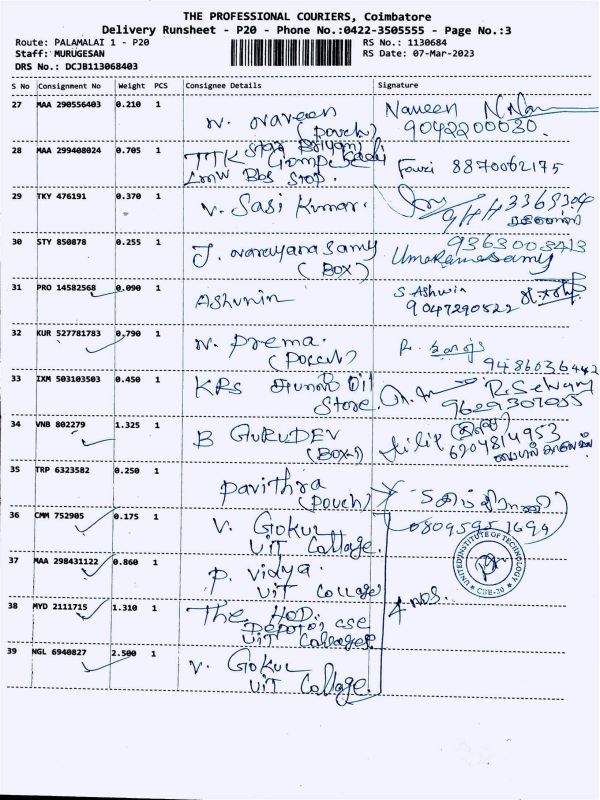 THE PROFESSIONAL COURIERS, Coimbatore
Delivery Runsheet - P20 - Phone No.:0422-3505555 - Page No.:3
Route: PALAMALAI 1 - P20
RS No.: 1130684
Staff: MURUGESAN
RS Date: 07-Mar-2023
DRS No.: DCJB113068403
S No Consignment No Weight PCS Consignee Details Signature
27 MAA 290556403 0.210 1 N. Naveen Naveen
(pouch) 9042200030.
28 MAA 299408024 0.705 1 Star Briyani
TTK
LMW Bbs Stop. Fowzi 8870062175
29 TKY 476191 0.370 1 V. Sasi Kumar.
30 STY 850878 0.255 1 J. Narayanasamy 9363003413
(BOX) Umaramasamy
31 PRO 14582568 0.090 1 Ashwin S Ashwin
9047290522
32 KUR 527781783 0.790 1 N. Prema.
(pouch) 9486036442
33 IXM 503103503 0.450 1 KPS Oil R. Selvam
Store. 9629307055
34 VNB 802279 1.325 1 B GURUDEV
(Box) 6204814953
35 TRP 6323582 0.250 1 Pavithra
(pouch) 08095951699
36 CMM 752905 0.175 1 V. Gokul
UIT Collage.
UNITED INSTITUTE OF TECHNOLOGY
CBE-20
37 MAA 298431122 0.860 1 P. Vidya.
UIT Collage
38 MYD 2111715 1.310 1 The HOD. 4 nos.
CSE
UIT Collages
39 NGL 6940827 2.500 1 V. Gokul
UIT Collage.